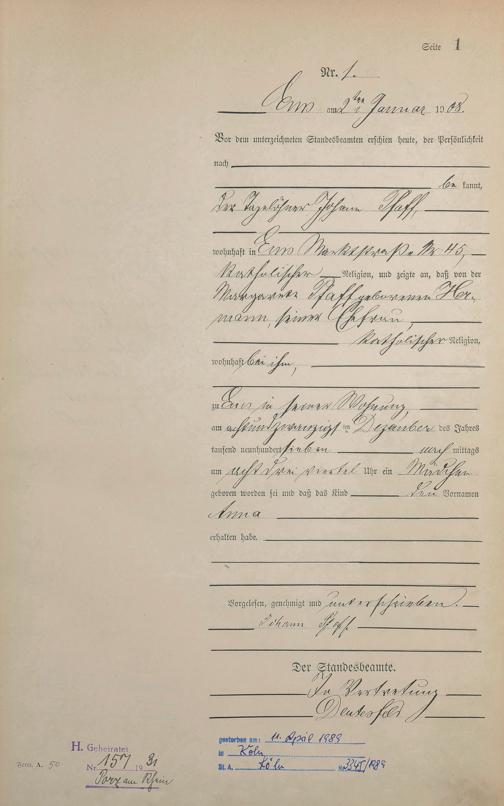 Seite 1
Nr. 1.
Ems am 2ten Januar 1908.
Vor dem unterzeichneten Standesbeamten erschien heute, der Persönlichkeit
nach
be kannt,
der Tagelöhner Johann Pfaff,
wohnhaft in Ems Marktstraße Nr 45,
katholischer Religion, und zeigte an, daß von der
Margarete Pfaff geborenen Her-
mann, seiner Ehefrau,
katholischer Religion,
wohnhaft bei ihm,
zu Ems in seiner Wohnung,
am achtundzwanzigsten Dezember des Jahres
tausend neunhundert sieben nach mittags
um acht drei viertel Uhr ein Mädchen
geboren worden sei und daß das Kind den Vornamen
Anna
erhalten habe.
Vorgelesen, genehmigt und unterschrieben.
Johann Pfaff
Der Standesbeamte.
In Vertretung
H. Geheiratet
Nr. 157 1931
Porz am Rhein
Form. A. 50
gestorben am: 11. April 1989
in Köln
St. A. Köln Nr. /1989